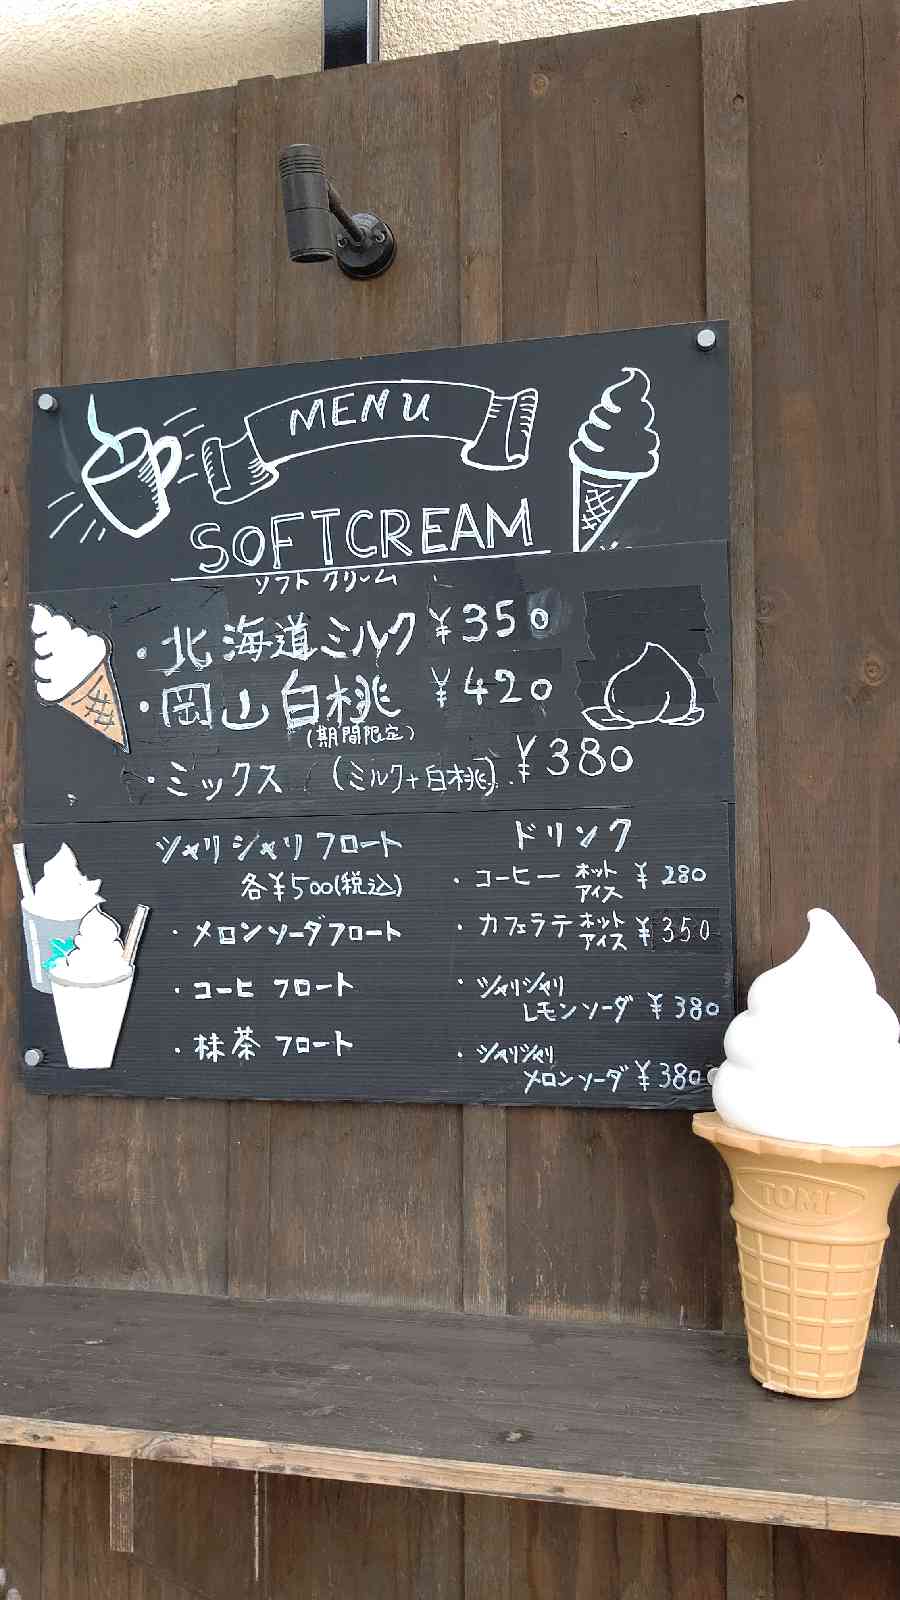 MENU
SOFTCREAM
ソフトクリーム
・北海道ミルク ¥350
・岡山白桃 ¥420
(期間限定)
・ミックス (ミルク+白桃) ¥380
シャリシャリフロート
各¥500(税込)
・メロンソーダフロート
・コーヒフロート
・抹茶フロート
ドリンク
・コーヒー ホット アイス ¥280
・カフェラテ ホット アイス ¥350
・シャリシャリ
レモンソーダ ¥380
・シャリシャリ
メロンソーダ ¥380
TOMI